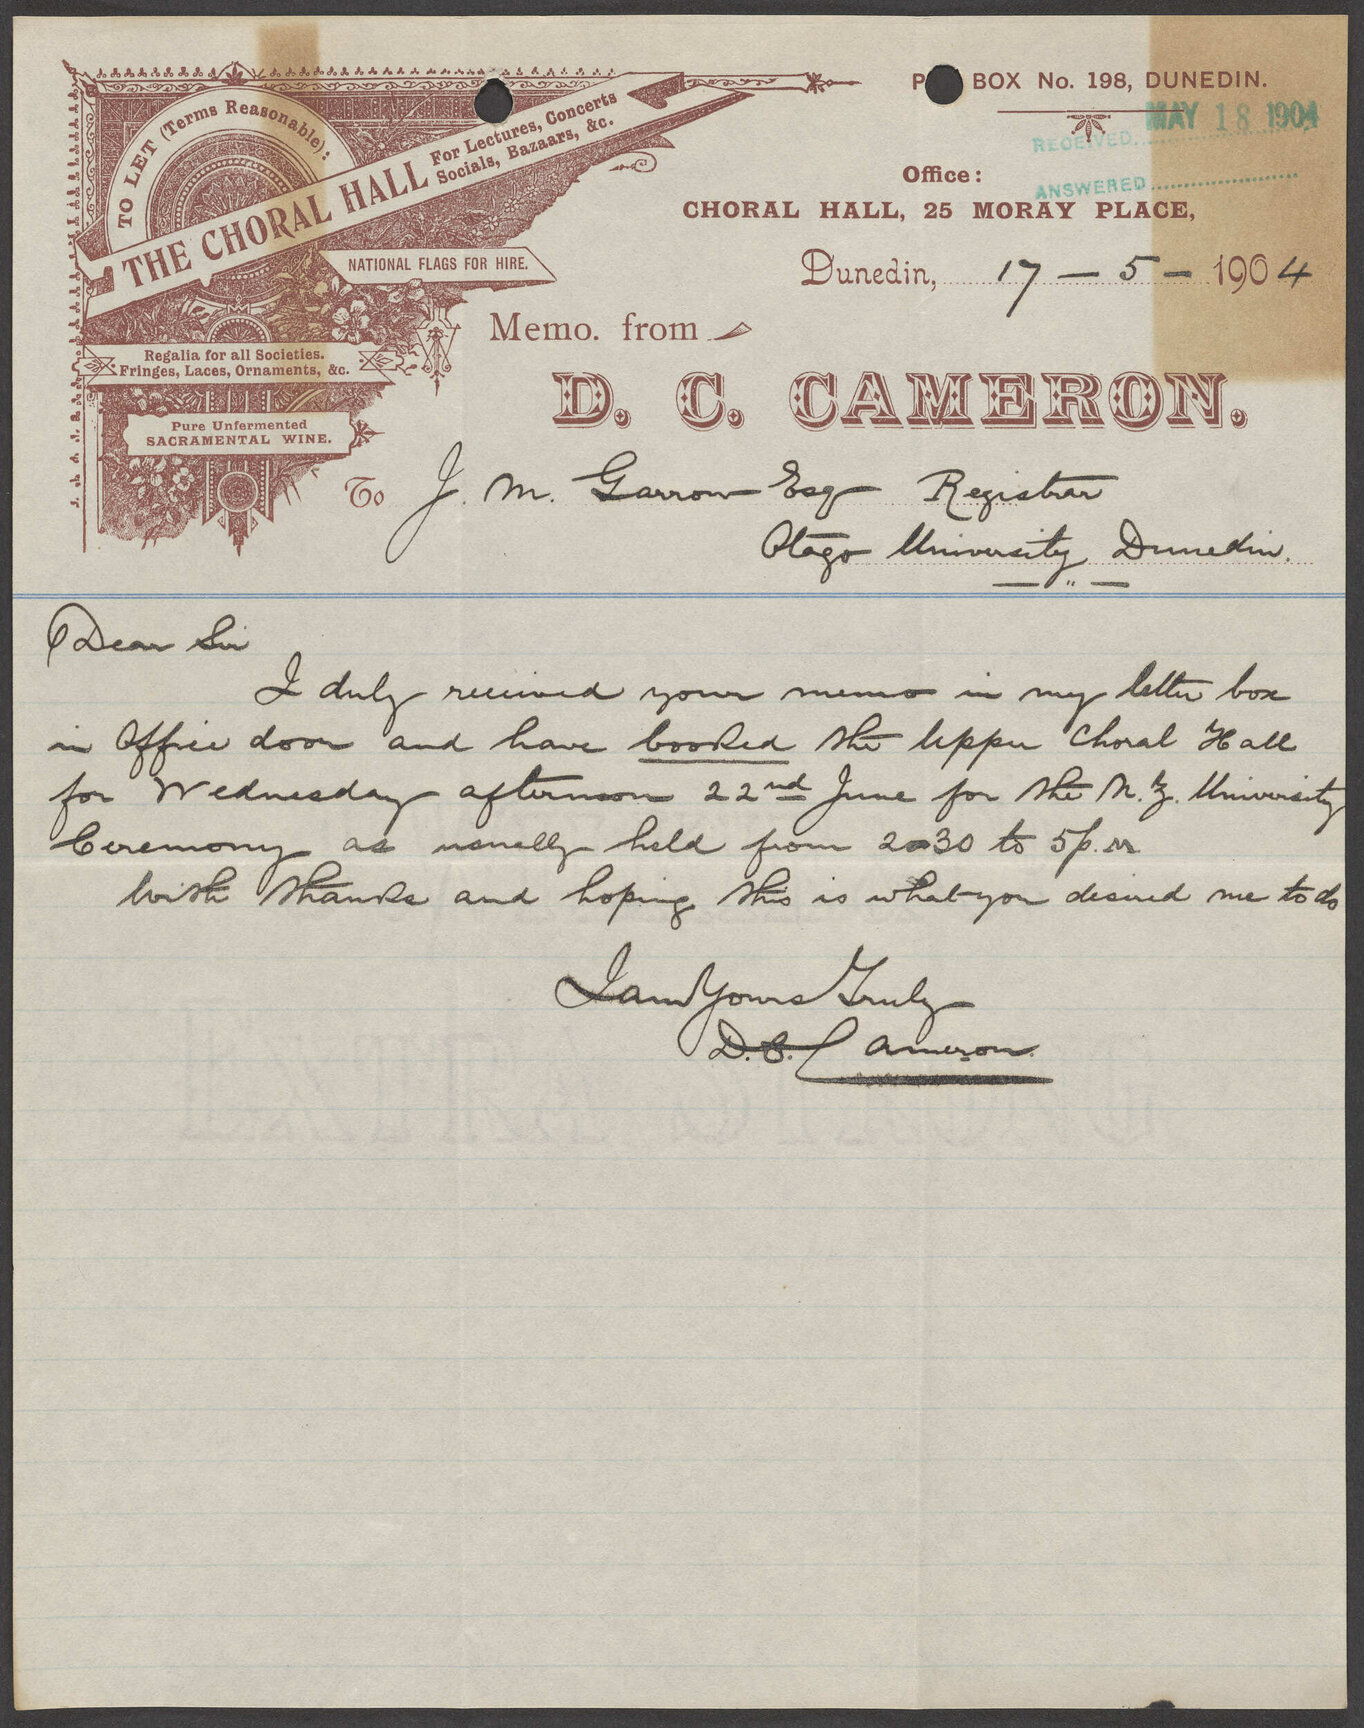 TO LET (Terms Reasonable):
THE CHORAL HALL For Lectures, Concerts
Socials, Bazaars, &c.
NATIONAL FLAGS FOR HIRE.
Regalia for all Societies.
Fringes, Laces, Ornaments, &c.
Pure Unfermented
SACRAMENTAL WINE.
P BOX No. 198, DUNEDIN.
MAY 18 1904
RECEIVED
ANSWERED
Office:
CHORAL HALL, 25 MORAY PLACE,
Dunedin, 17 - 5 - 1904
Memo. from
D. C. CAMERON.
To J. M. Garrow Esq Registrar
Otago University Dunedin.
Dear Sir
I duly received your memo in my letter box
in Office door and have booked the Upper Choral Hall
for Wednesday afternoon 22nd June for the N.Z. University
Ceremony as usually held from 2-30 to 5p.m
With thanks and hoping this is what you desired me to do
I am Yours Truly
D. C. Cameron.